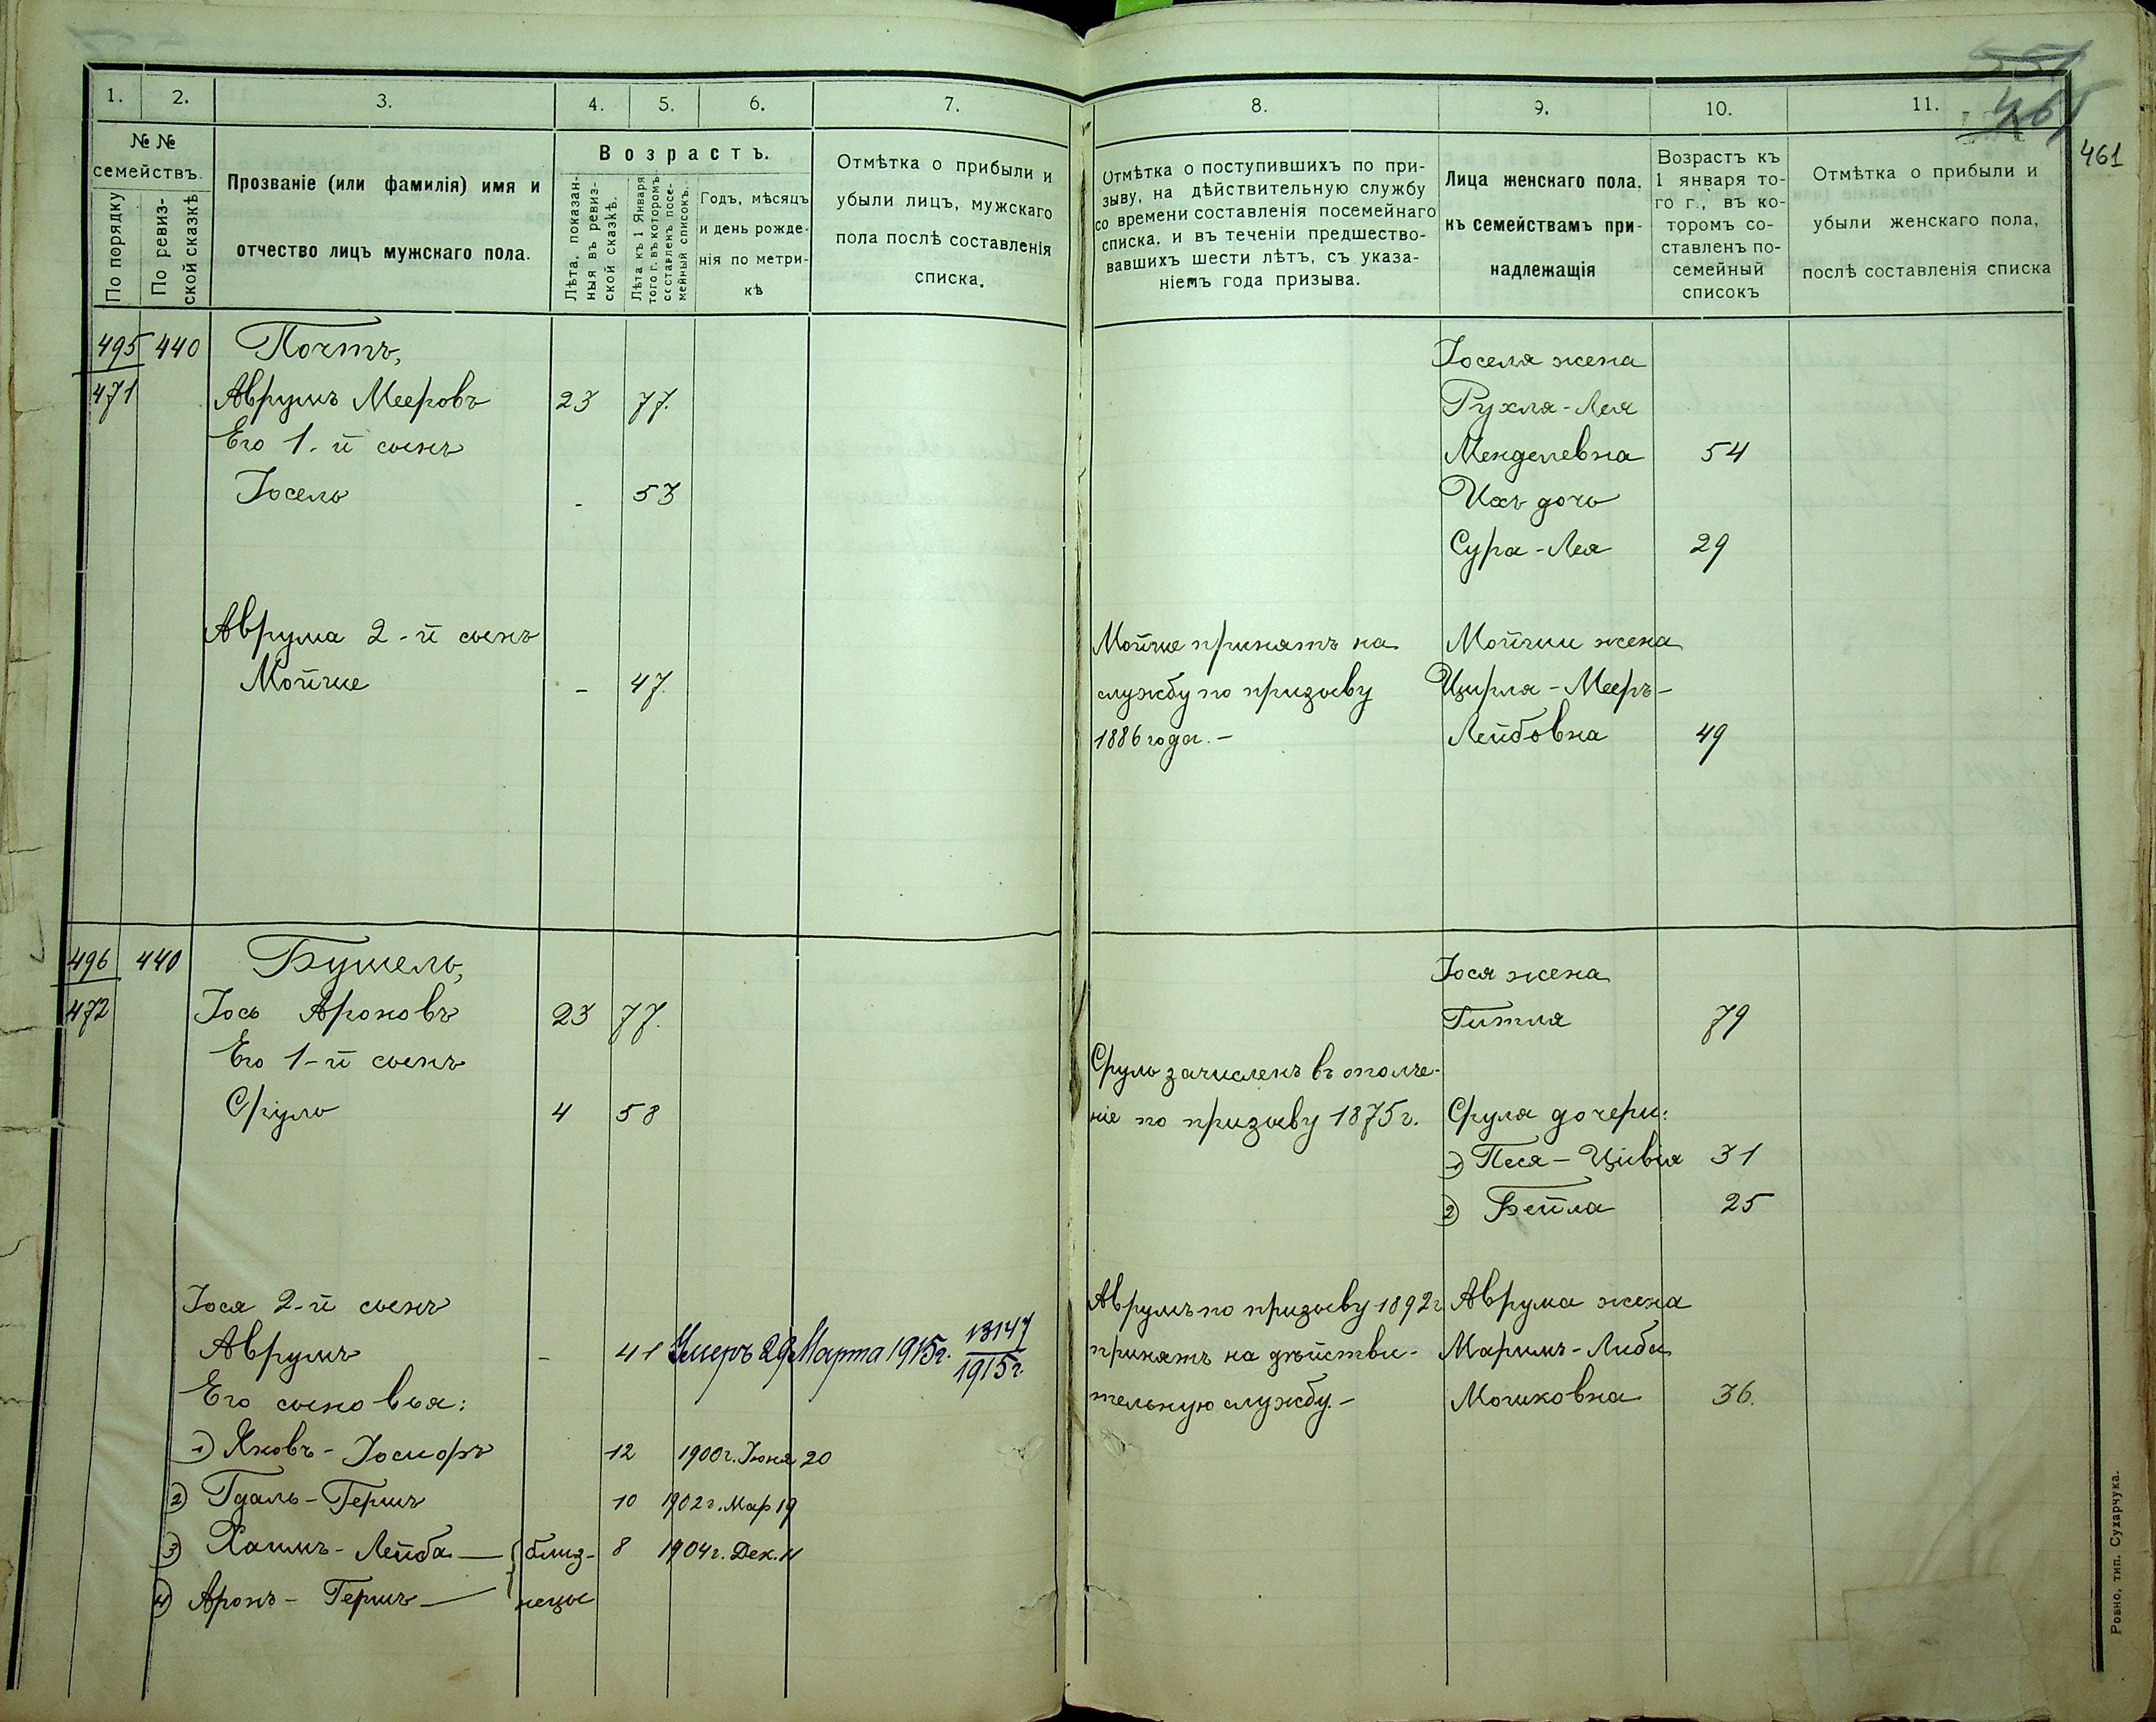 551
461
461
1. 2. 3. 4. 5. 6. 7.
№ №
семействъ.
По порядку
По ревизской сказкѣ
Прозваніе (или фамилія) имя и
отчество лицъ мужскаго пола.
Возрастъ.
Лѣта, показан-
ныя въ ревиз-
ской сказкѣ.
Лѣта къ 1 Января
того г. въ которомъ
составленъ посе-
мейный списокъ.
Годъ, мѣсяцъ
и день рожде-
нія по метри-
кѣ
Отмѣтка о прибыли и
убыли лицъ, мужскаго
пола послѣ составленія
списка.
495 440 Почтъ,
471 Аврумъ Мееровъ 23 77.
Его 1-й сынъ
Іосель - 53
Аврума 2-й сынъ
Мойше - 47.
496 440 Бушель,
472 Іось Ароновъ 23 77.
Его 1-й сынъ
Сруль 4 58
Іося 2-й сынъ
Аврумъ - 41 Умеръ 29 Марта 1915г. 13147
1915г.
Его сыновья:
1) Яковъ-Іосифъ 12 1900г. Іюня 20
2) Гдаль-Гершъ 10 1902г. Мар 19
3) Хаимъ-Лейба — близ- 8 1904г. Дек. 11
4) Аронъ-Гершъ — нецы
8. 9. 10. 11.
Отмѣтка о поступившихъ по при-
зыву, на дѣйствительную службу
со времени составленія посемейнаго
списка, и въ теченіи предшество-
вавшихъ шести лѣтъ, съ указа-
ніемъ года призыва.
Лица женскаго пола,
къ семействамъ при-
надлежащія
Возрастъ къ
1 января то-
го г., въ ко-
торомъ со-
ставленъ по-
семейный
списокъ
Отмѣтка о прибыли и
убыли женскаго пола,
послѣ составленія списка
Іоселя жена
Рухля-Лея
Менделевна 54
Ихъ дочь
Сура-Лея 29
Мойше принятъ на Мойши жена
службу по призыву Цирля-Мееръ-
1886 года.- Лейбовна 49
Іося жена
Гитля 79
Сруль зачисленъ въ ополче-
ніе по призыву 1875г. Сруля дочери:
1) Песя-Цивія 31
2) Бейла 25
Аврумъ по призыву 1892г Аврума жена
принятъ на дѣйстви- Маримъ-Либа
тельную службу.- Мошковна 36.
Ровно, тип. Сухарчука.